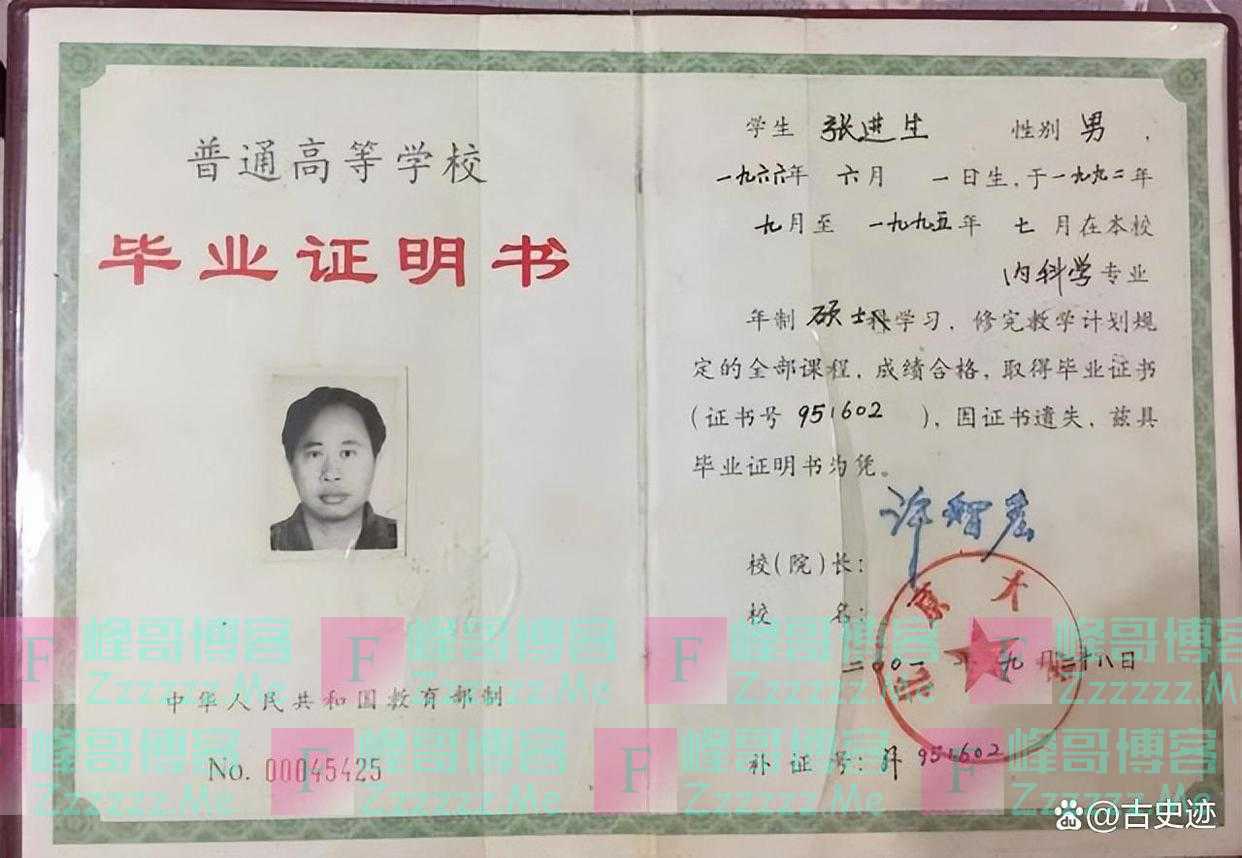 普通高等学校
毕业证明书
中华人民共和国教育部制
No. 00045425
学生 张进生 性别 男 ，
一九六六年 六月 一日生，于一九九二年
九月至 一九九五年 七 月在本校
内科学专业
年制 硕士科学习，修完教学计划规
定的全部课程，成绩合格，取得毕业证书
（证书号 951602 ），因证书遗失，兹具
毕业证明书为凭。
许智宏
校（院）长：
校 名：
北京大学
二00一年九月二十八日
补 证 号： 951602
F 峰哥博客
Zzzzzz.Me
F 峰哥博客
Zzzzzz.Me
F 峰哥博客
Zzzzzz.Me
F 峰哥博客
Zzzzzz.M
峰哥博客
Zzzzzz.Me
F 峰哥博客
Zzzzzz.Me
F 峰哥博客
Zzzzzz.Me
F 峰哥博客
Zzzzzz.Me
du @古史迹